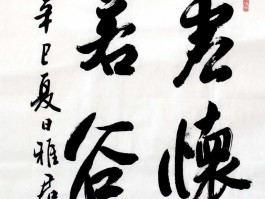 虚懷
若谷
辛巳夏日雅君